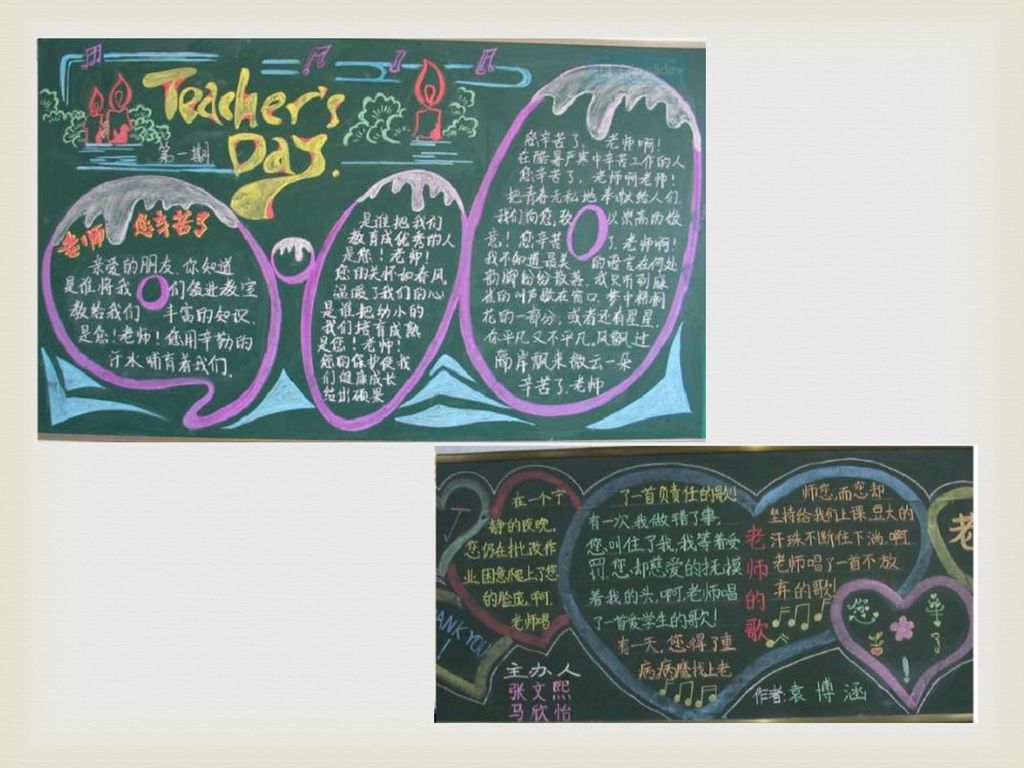 Teacher's
Day.
第一期
老师 您辛苦了
亲爱的朋友,你知道
是谁将我们领进教室
教给我们丰富的知识.
是您!老师!您用辛勤的
汗水哺育着我们.
是谁把我们
教育成优秀的人
是您!老师!
您的关怀如春风
温暖了我们的心
是谁把幼小的
我们培育成熟
是您!老师!
您的保护使我
们健康成长
结出硕果
您辛苦了,老师啊!
在酷暑严寒中辛苦工作的人
您辛苦了,老师啊老师!
把青春无私地奉献给人们.
我们向您致以崇高的敬
意!您辛苦了,老师啊!
我不知道最美的语言在何处
雀的叫声歇在窗口,梦中梧桐
花的一部分,或者还有星星.
你平凡又不平凡,风飘过
隔岸飘来微云一朵
辛苦了,老师
在一个宁
静的夜晚,
您仍在批改作
业,困意爬上了您
的脸庞,啊,
老师唱
了一首负责任的歌!
有一次,我做错了事,
您叫住了我,我等着受
罚,您却慈爱的抚摸
着我的头,啊,老师唱
了一首爱学生的歌!
有一天,您得了重
病,病魔找上老
师您,而您却
坚持给我们上课,豆大的
汗珠不断往下淌,啊,
老师唱了一首不放
弃的歌!
老师的歌
老
您辛
了
!
T
ANK YOU
!
主办人
张文熙
马欣怡
作者:袁博涵